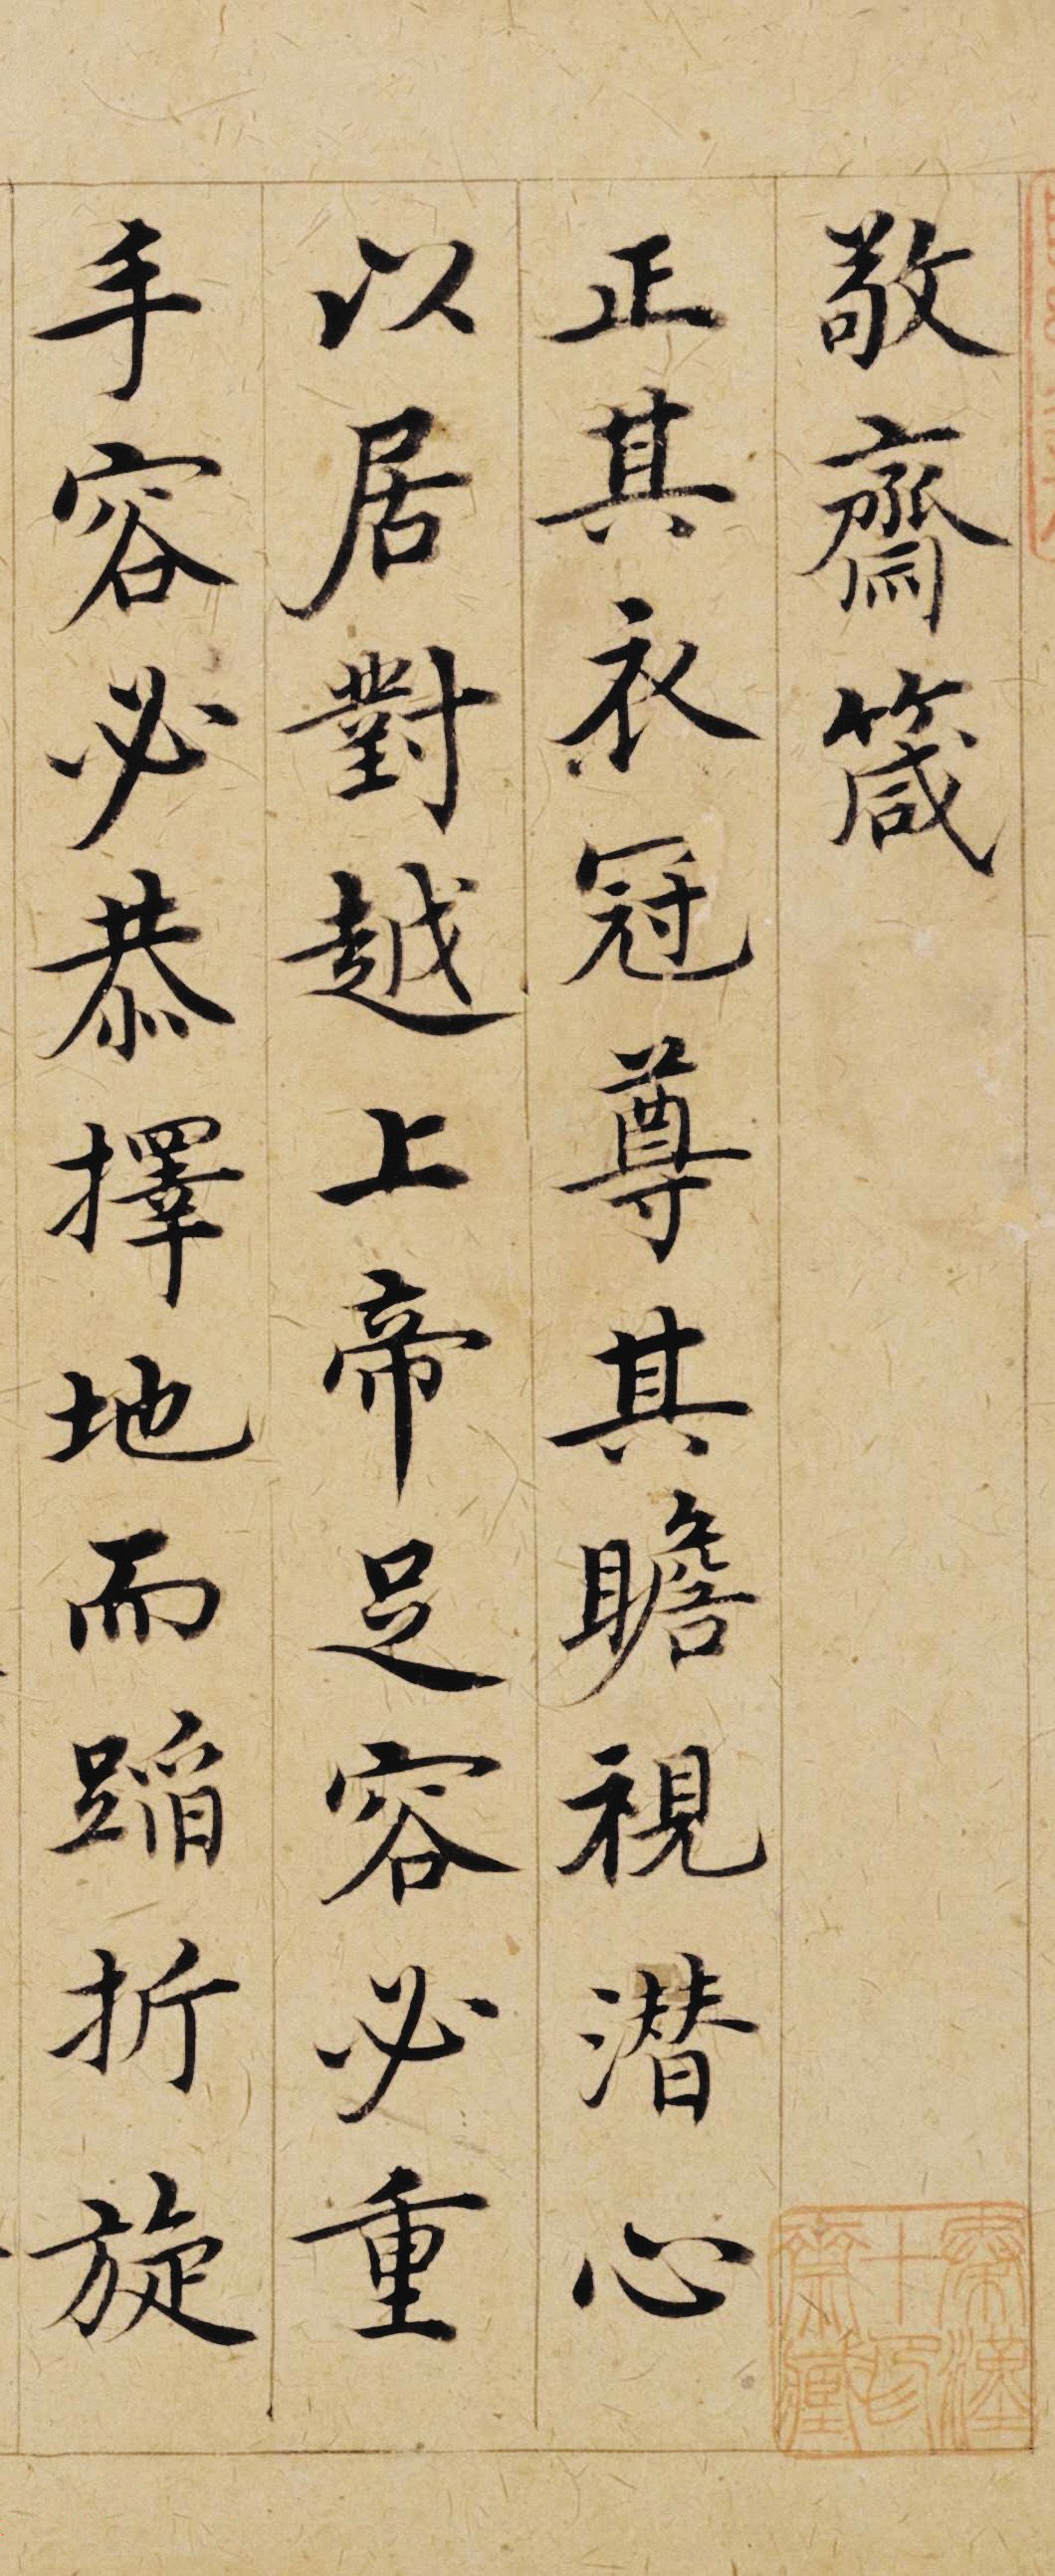 敬齋箴
正其衣冠尊其瞻視潛心
以居對越上帝足容必重
手容必恭擇地而蹈折旋